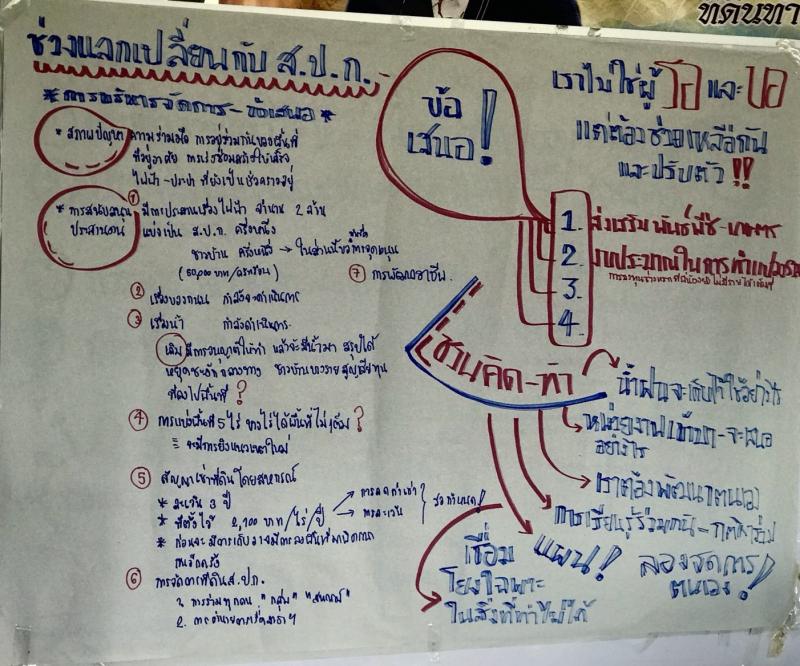 ทดนทา
ช่วงแลกเปลี่ยนกับ ส.ป.ก.
* การบริหารจัดการ - ข้อเสนอ *
* สภาพปัญหา ความร่วมมือ การอยู่ร่วมกันของพื้นที่
ที่อยู่อาศัย
ไฟฟ้า - ประปา ที่ยังเป็นชั่วคราวอยู่
* การสนับสนุน
ประสานงาน
① มีการประสานเรื่องไฟฟ้า จำนวน 2 ล้าน
แบ่งเป็น ส.ป.ก. ครึ่งหนึ่ง
ชาวบ้าน ครึ่งหนึ่ง →
(50,000 บาท/ครัวเรือน)
⑦ การพัฒนาอาชีพ.
② เรื่องของถนน กำลังจะดำเนินการ
③ เรื่องน้ำ กำลังดำเนินการ.
เดิม มีการอนุญาตให้ทำ แล้วจะมีน้ำมา สรุปได้
ชาวบ้าน สูญเสียทุน
ที่ลงไปพื้นที่ ?
④ การแบ่งพื้นที่ 5 ไร่ บางไร่ได้พื้นที่ไม่เต็ม ?
= จะมีการยิงแนวเขตใหม่
⑤ สัญญาเช่าที่ดินโดยสหกรณ์
* 3 ปี
* ที่ตั้งไว้ 2,100 บาท/ไร่/ปี
การลดค่าเช่า
ข้อกำหนด!
* ก่อนจะมีการเก็บ
อีกครั้ง
⑥ การจัดการที่ดิน ส.ป.ก.
1. การร่วมทุกคน "กลุ่ม" "สหกรณ์"
2.
ข้อ
เสนอ!
เราไม่ใช่ผู้ รอ และ ขอ
แต่ต้องช่วยเหลือกัน
และปรับตัว !!
1. ส่งเสริม พันธุ์พืช - เกษตร
2. งบประมาณในการทำแปลงรวม
3.
4.
ชวนคิด - ทำ
น้ำฝนจะเก็บไว้ใช้อย่างไร
หน่วยงานเข้ามา - จะเสนอ
อย่างไร
เราต้องพัฒนาตนเอง
การเรียนรู้ร่วมกัน - กติการ่วม
แผน! ลองจัดการ
ตนเอง!
เชื่อม
โยงเฉพาะ
ในสิ่งที่ทำไม่ได้